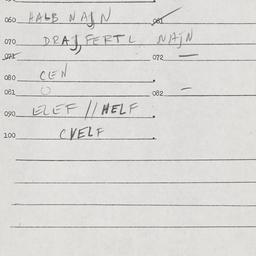 060 HALB NAJN 061
070 DRAJ, FERTL NAJN
071 072 —
080 CEN
081 082 —
090 ELEF // HELF
100 CVELF